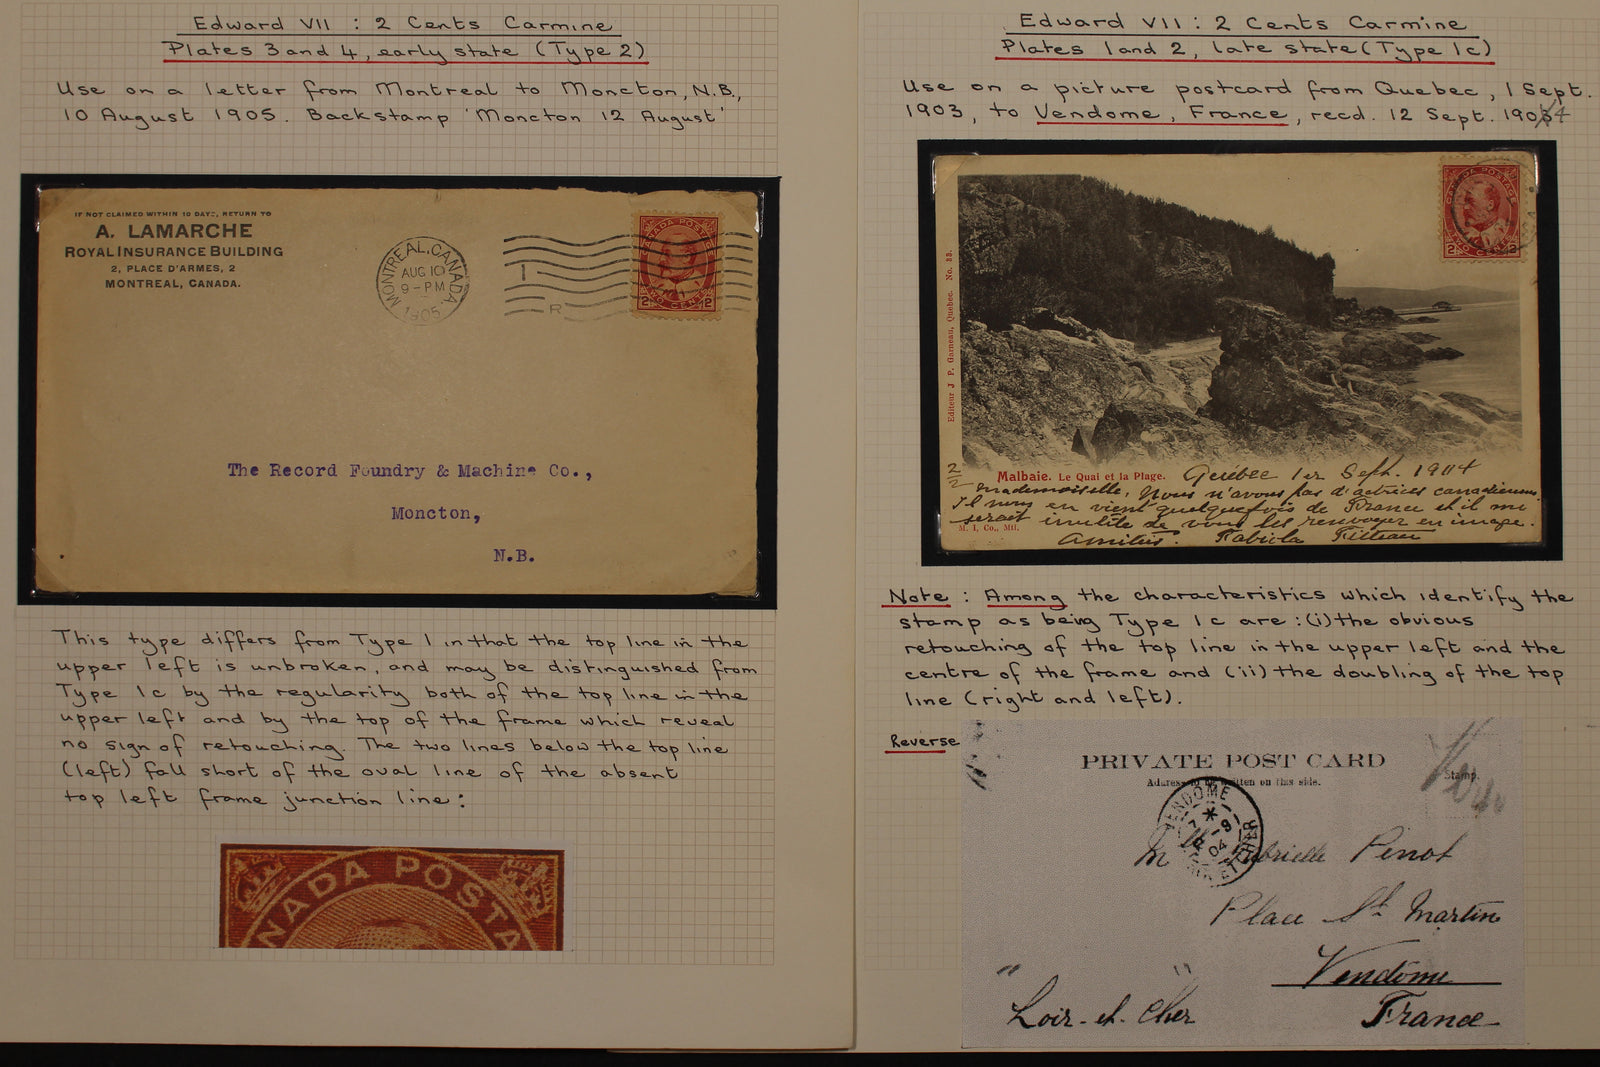 Edward VII : 2 Cents Carmine
Plates 3 and 4, early state (Type 2)
Use on a letter from Montreal to Moncton, N.B.,
10 August 1905. Backstamp 'Moncton 12 August'
IF NOT CLAIMED WITHIN 10 DAYS, RETURN TO
A. LAMARCHE
ROYAL INSURANCE BUILDING
2, PLACE D'ARMES, 2
MONTREAL, CANADA.
MONTREAL, CANADA
AUG 10
9-PM
1905
1
R
CANADA POSTAGE
2 2
TWO CENTS
The Record Foundry & Machine Co.,
Moncton,
N.B.
This type differs from Type 1 in that the top line in the
upper left is unbroken, and may be distinguished from
Type 1c by the regularity both of the top line in the
upper left and by the top of the frame which reveal
no sign of retouching. The two lines below the top line
(left) fall short of the oval line of the absent
top left frame junction line:
NADA POSTA
Edward VII : 2 Cents Carmine
Plates 1 and 2, late state (Type 1c)
Use on a picture postcard from Quebec, 1 Sept.
1903, to Vendome, France, recd. 12 Sept. 1904
CANADA POSTAGE
2 2
TWO CENTS
Editeur J. P. Garneau, Quebec. No. 33.
2/2
Malbaie. Le Quai et la Plage.
Québec 1er Sept. 1904
Mademoiselle, Nous n'avons pas d'actrices canadiennes.
Il nous en vient quelquefois de France et il me
serait inutile de vous les renvoyer en image.
M. I. Co., Mtl.
Amitiés.
Note : Among the characteristics which identify the
stamp as being Type 1c are : (i) the obvious
retouching of the top line in the upper left and the
centre of the frame and (ii) the doubling of the top
line (right and left).
Reverse
PRIVATE POST CARD
Address to be written on this side.
Stamp.
VENDOME
-9
04
LOIR ET CHER
Penot
Place St Martin
Vendôme
"Loir-et-Cher"
France